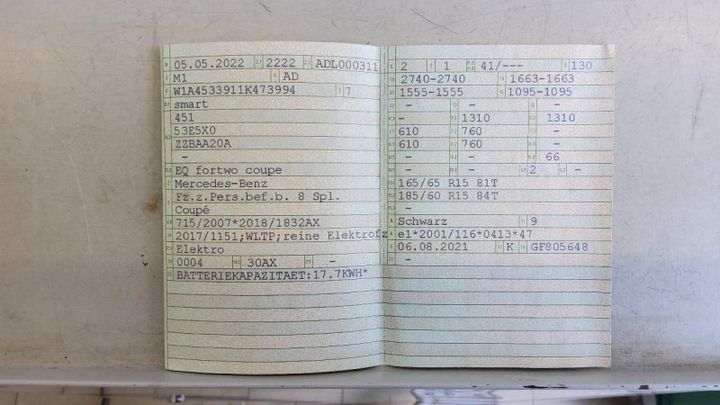 05.05.2022 2222 ADL000311
M1 AD
W1A4533911K473994 7
smart
451
53E5X0
ZZBAA20A
-
EQ fortwo coupe
Mercedes-Benz
Fz.z.Pers.bef.b. 8 Spl.
Coupé
715/2007*2018/1832AX
2017/1151;WLTP;reine Elektrofz
Elektro
0004 30AX -
BATTERIEKAPAZITAET:17.7KWH*
2 1 41/--- 130
2740-2740 1663-1663
1555-1555 1095-1095
- - -
- 1310 1310
610 760
610 760
- - 66
- - 2 -
165/65 R15 81T
185/60 R15 84T
-
Schwarz 9
e1*2001/116*0413*47
06.08.2021 K GF805648
-